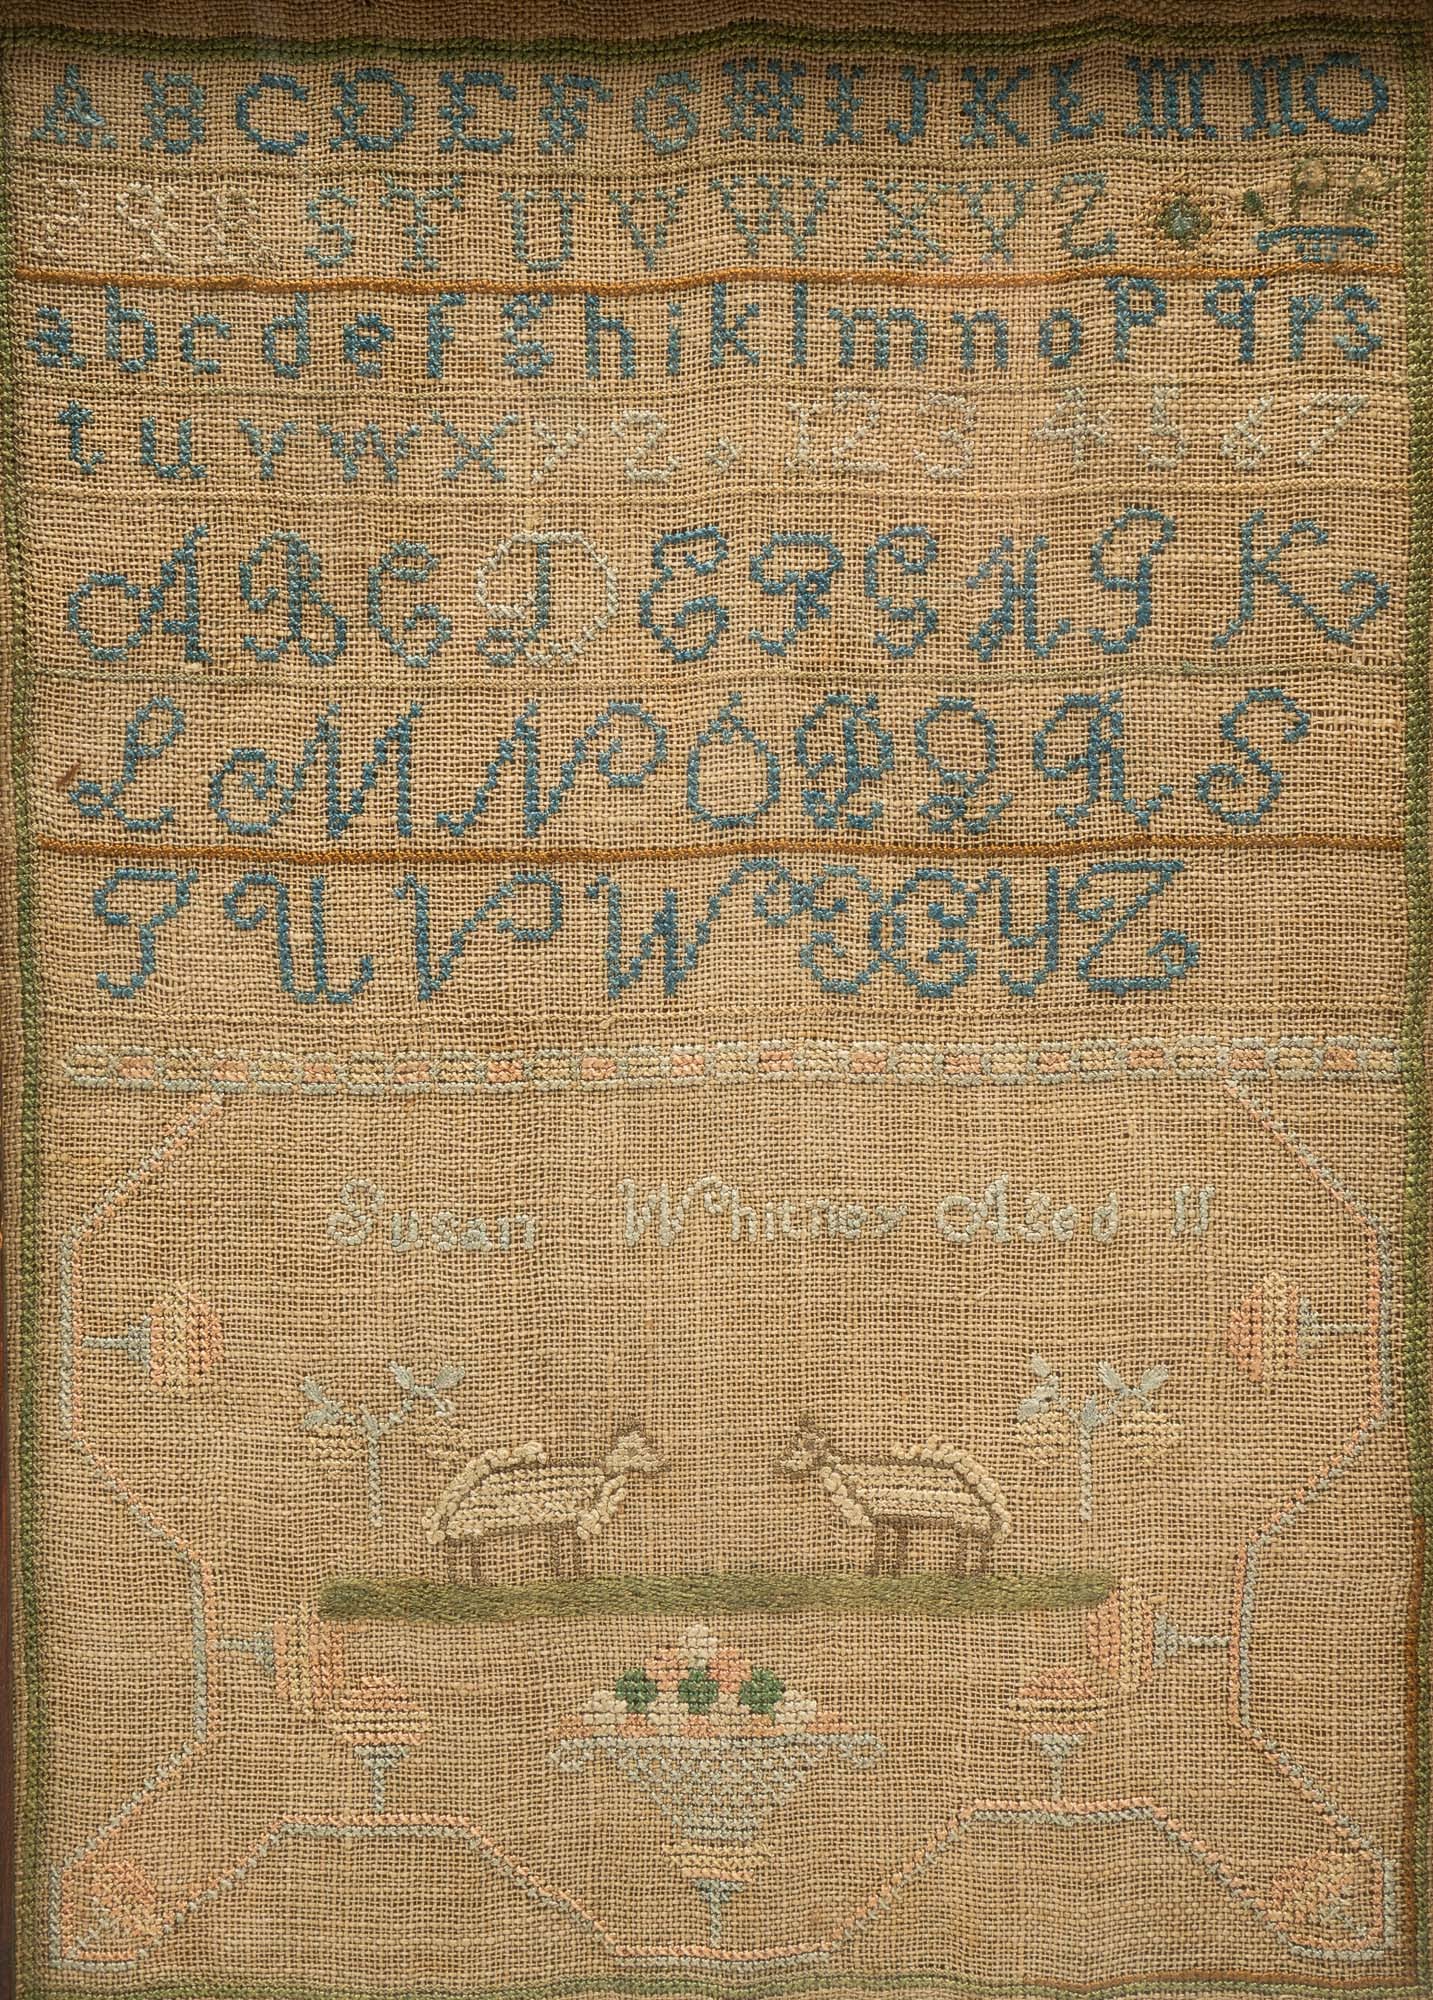 A B C D E F G H I J K L M N O
P Q R S T U V W X Y Z
a b c d e f g h i k l m n o p q r s
t u v w x y z , 1 2 3 4 5 6 7
A B C D E F G H I K
L M N O P Q R S
T U V W X Y Z
Susan Whitney Aged 11